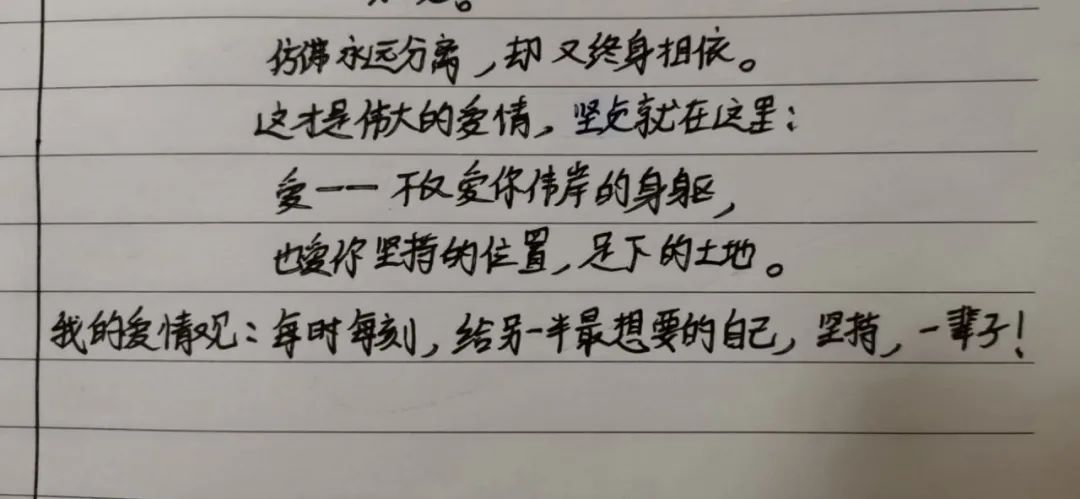 仿佛永远分离，却又终身相依。
这才是伟大的爱情，坚贞就在这里：
爱一一不仅爱你伟岸的身躯，
也爱你坚持的位置，足下的土地。
我的爱情观：每时每刻，给另一半最想要的自己，坚持，一辈子！